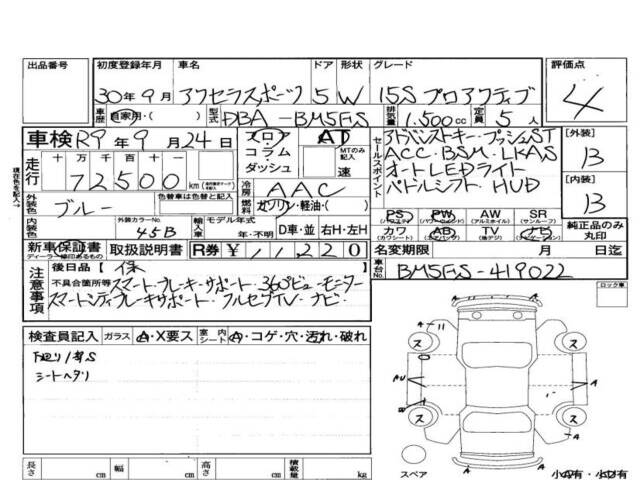 出品番号 初度登録年月 車名 ドア 形状 グレード 評価点
30年9月 アクセラスポーツ 5 W 15S プロアクティブ 4
車歴 自家用・( ) 型式 DBA-BM5FS 排気量 1.500cc 定員 5人
車検 R9年9月24日 フロア AT セールスポイント アドバンストキー・プッシュST [外装]
現在色を記入→ 走行 十万千百十 コラム MTのみ記入 ACC・BSM・LKAS B
72500km ダッシュ 速 オートLEDライト [内装]
外装色 ブルー 色替車は色替と記入 冷房 AAC パドルシフト HUD B
燃料 ガソリン・軽油・( ) PS PW AW SR
(パワステ) (パワーウィンド) (アルミホイル) (サンルーフ)
内装色 外装カラーNo. 45B 輸入車 モデル年式 年・不明 D車・並 右H・左H カワ AB TV ナビ 純正品のみ丸印
(カワシート) (エアバッグ) (地デジ) (ナビゲーション)
新車保証書 取扱説明書 R券 ¥11,220 名変期限 月 日迄
ディーラー捺印あるもの
注意事項 後日品( 保 車台No. BM5FS-419022
不具合箇所等 スマートブレーキサポート・360°ビューモニター ロック車
スマートシティブレーキサポート・フルセグTV・ナビ・
検査員記入 ガラス A・X要ス 室内シート A・コゲ・穴・汚れ・破れ
下廻り
シートヘタリ
ス ス
A A
ス ス
A
スペア 小A有・小凹有
長さ cm 幅 cm 高さ cm 積載量 kg